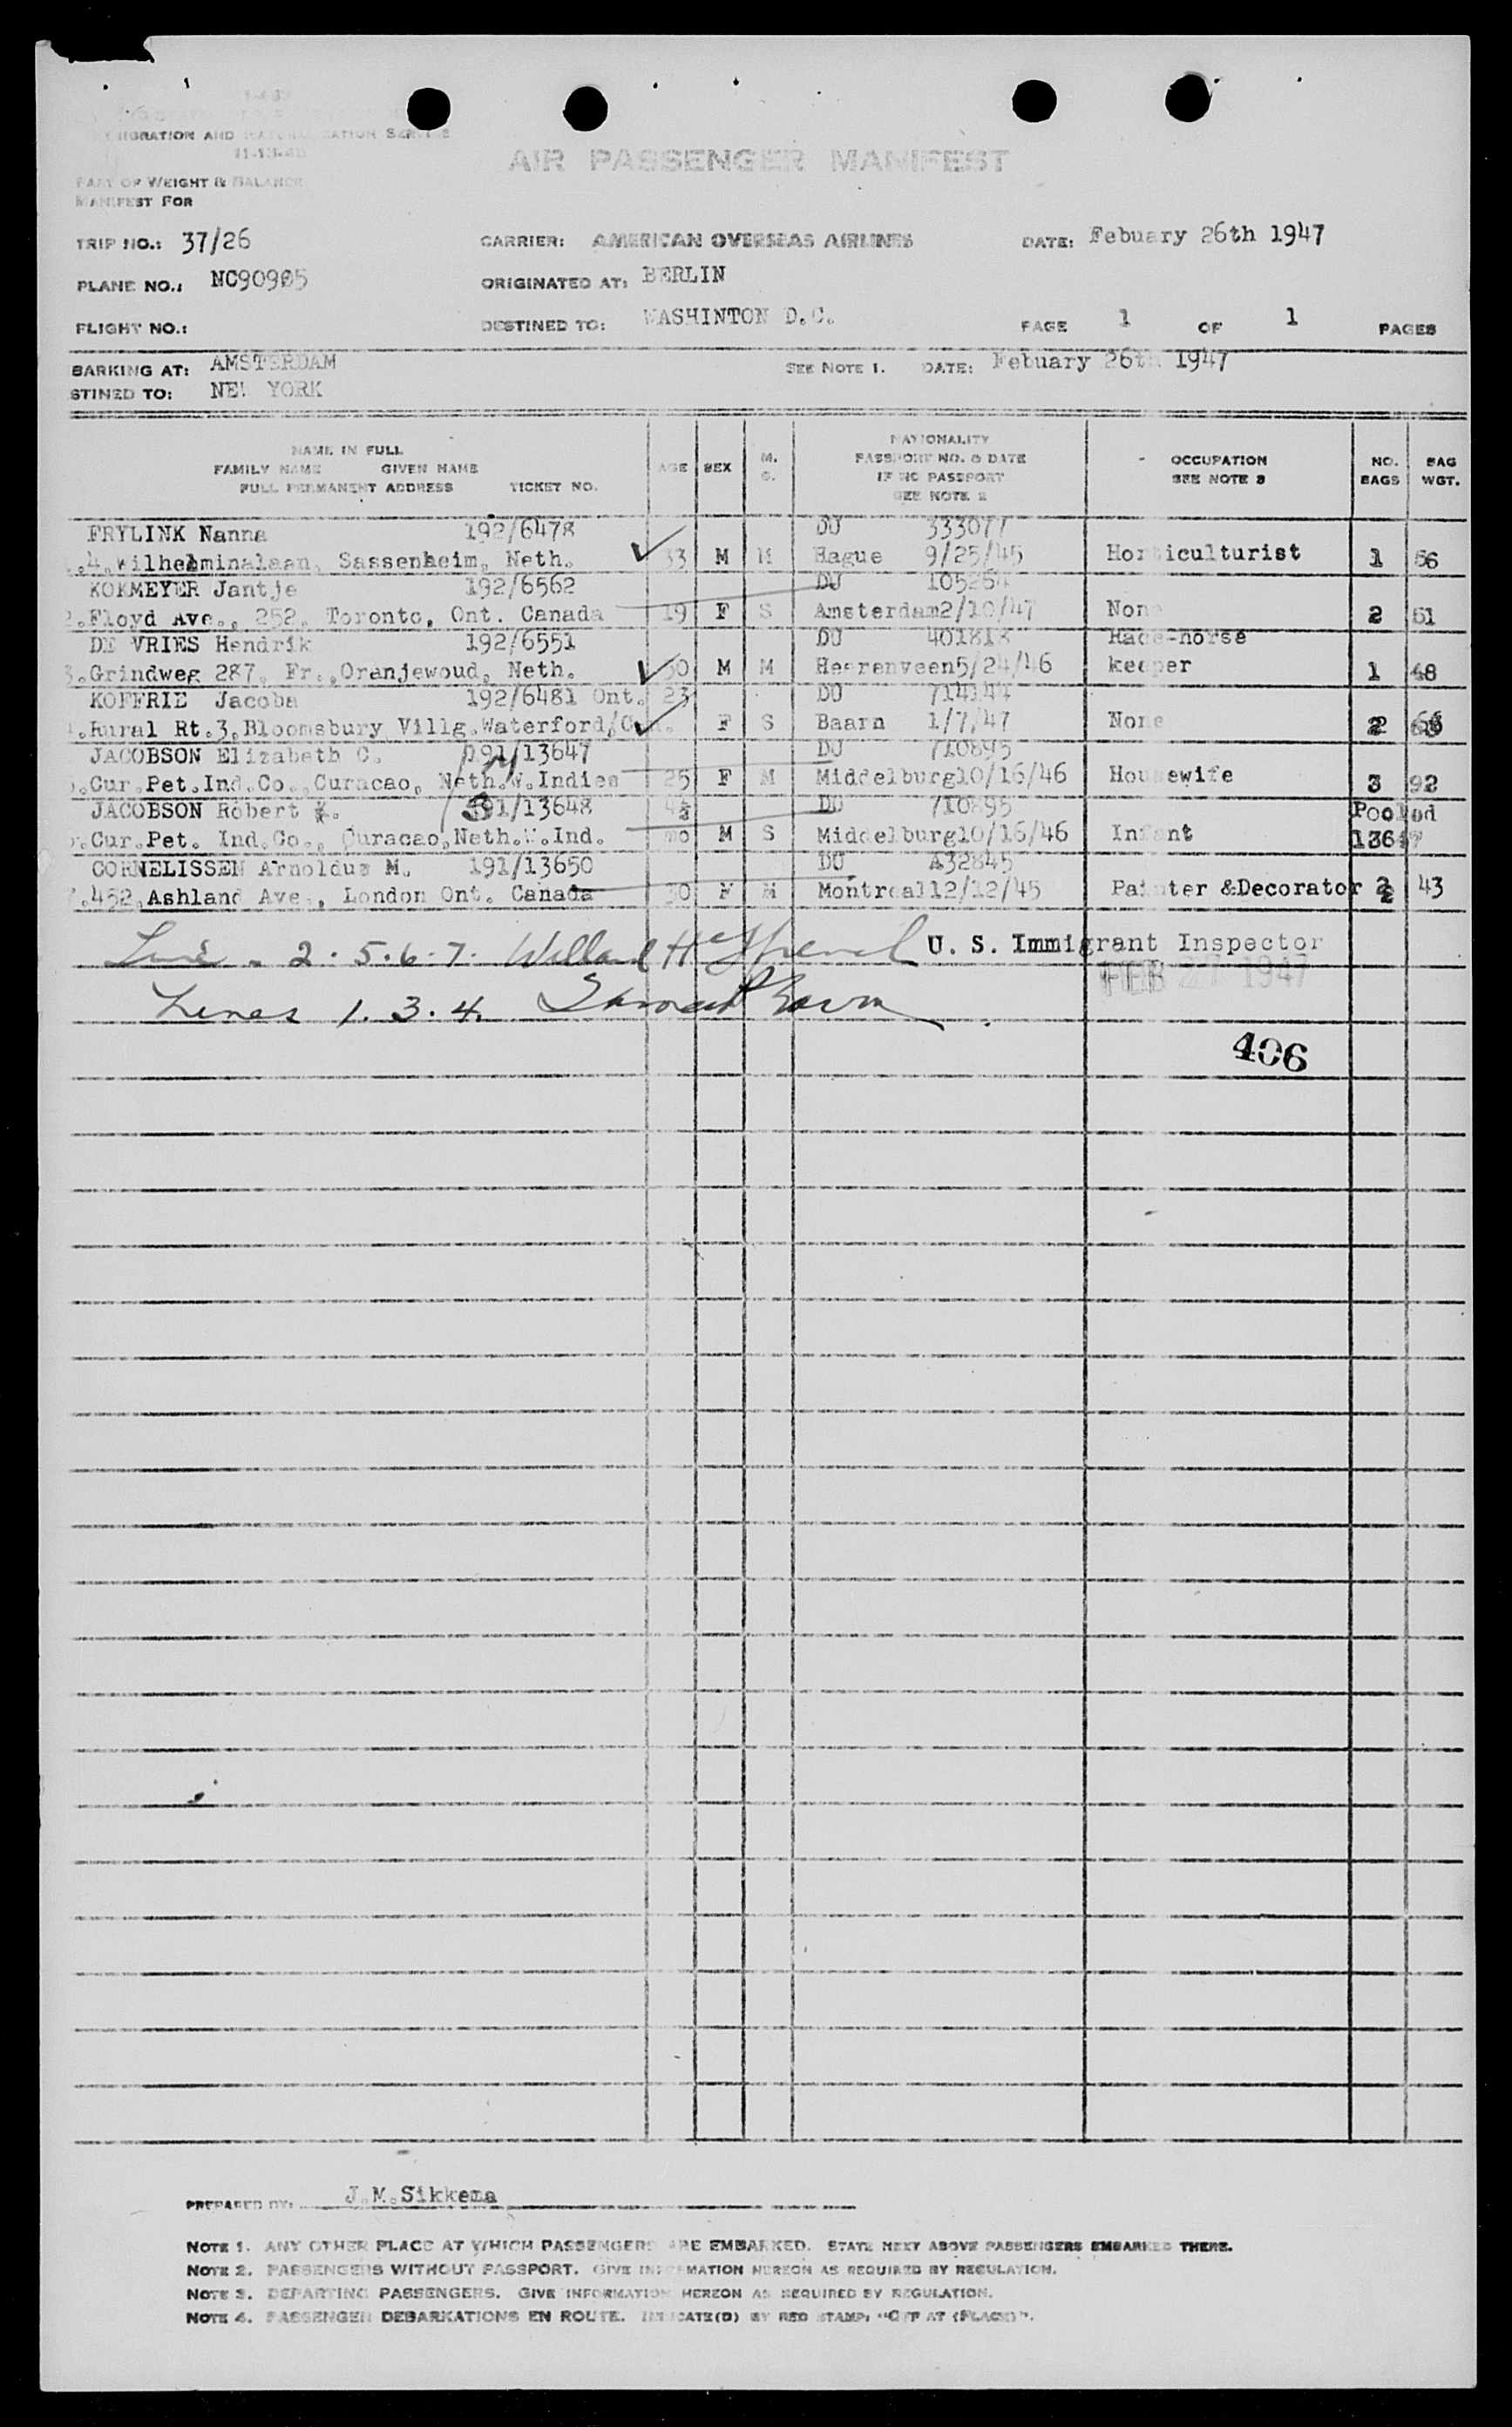 IGRATION AND NATURALIZATION SERVICE
AIR PASSENGER MANIFEST
PART OF WEIGHT & BALANCE
MANIFEST FOR
TRIP NO.: 37/26 CARRIER: AMERICAN OVERSEAS AIRLINES DATE: Febuary 26th 1947
PLANE NO.: NC90905 ORIGINATED AT: BERLIN
FLIGHT NO.: DESTINED TO: WASHINTON D.C. PAGE 1 OF 1 PAGES
BARKING AT: AMSTERDAM SEE NOTE 1. DATE: Febuary 26th 1947
STINED TO: NEW YORK
NAME IN FULL NATIONALITY
FAMILY NAME GIVEN NAME AGE SEX M. PASSPORT NO. & DATE OCCUPATION NO. BAG
S. IF NO PASSPORT SEE NOTE 3 BAGS WGT.
FULL PERMANENT ADDRESS TICKET NO. SEE NOTE 2
FRYLINK Nanna 192/6478 DU 333077
.4.Wilhelminalaan, Sassenheim, Neth. 33 M M Hague 9/25/45 Horticulturist 1 56
KOKMEYER Jantje 192/6562 DU 105264
2.Floyd Ave., 252, Toronto, Ont. Canada 19 F S Amsterdam2/10/47 None 2 51
DE VRIES Hendrik 192/6551 DU 401818 Race-horse
3.Grindweg 287, Fr.,Oranjewoud, Neth. 30 M M Heerenveen5/24/46 keeper 1 48
KOFFRIE Jacoba 192/6481 Ont. 23 DU 714144
.Rural Rt.3,Bloomsbury Villg.Waterford/C F S Baarn 1/7/47 None 2
JACOBSON Elizabeth C. 191/13647 DU 710895
.Cur.Pet.Ind.Co.,Curacao, Neth.W.Indies 25 F M Middelburg10/16/46 Housewife 3 92
JACOBSON Robert 191/13648 4½ DU 710895 Pooled
.Cur.Pet. Ind.Co., Curacao,Neth.W.Ind. mo M S Middelburg10/16/46 Infant 13647
CORNELISSEN Arnoldus M. 191/13650 DU A32845
.452,Ashland Ave., London Ont. Canada 30 M M Montreal12/12/45 Painter &Decorator 2 43
Line . 2 . 5 . 6 . 7 . Willard H U. S. Immigrant Inspector
FEB 27 1947
Lines 1 . 3 . 4.
406
PREPARED BY: J.M.Sikkema
NOTE 1. ANY OTHER PLACE AT WHICH PASSENGERS ARE EMBARKED. STATE NEXT ABOVE PASSENGERS EMBARKED THERE.
NOTE 2. PASSENGERS WITHOUT PASSPORT. GIVE INFORMATION HEREON AS REQUIRED BY REGULATION.
NOTE 3. DEPARTING PASSENGERS. GIVE INFORMATION HEREON AS REQUIRED BY REGULATION.
NOTE 4. PASSENGER DEBARKATIONS EN ROUTE. INDICATE(D) BY RED STAMP: "OFF AT (PLACE)".